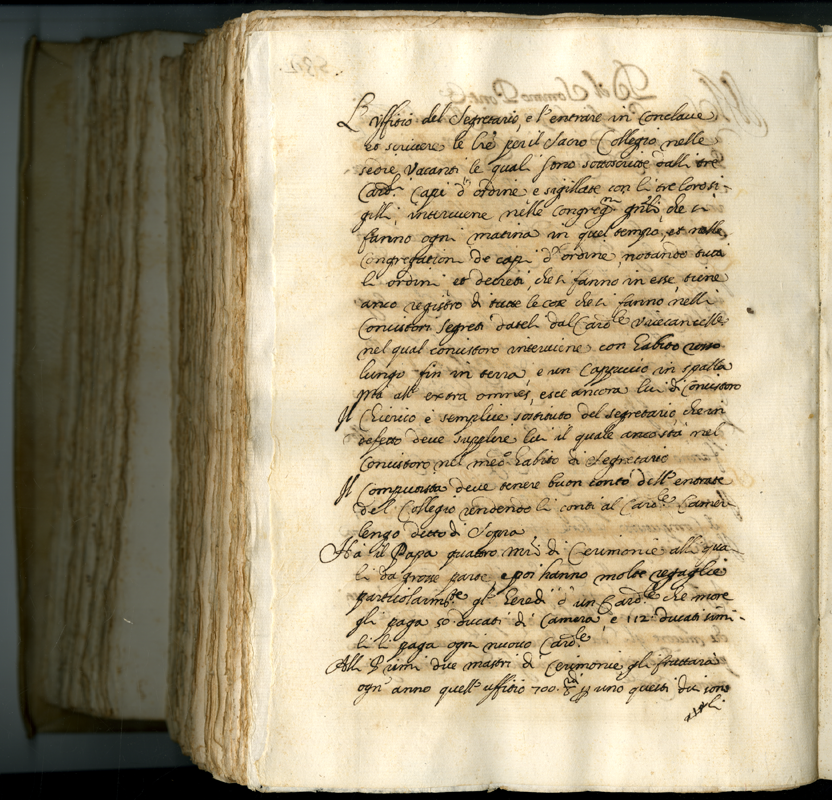 L'uffitio del Segretario, e l'entrare in Conclave
et scrivere le lre per il Sacro Collegio nelle
sedie Vacanti le quali sono sottoscritte dalli tre
Cardli Capi d'ordine e sigillate con li tre loro si-
gilli, interviene nelle Congregni grāli che si
fanno ogni matina in quel tempo, et nella
Congregation de capi d'ordine, notando tutti
li ordini et decreti, che si fanno in esse, tiene
anco registro di tutte le cose che si fanno nelli
Concistori Segreti dateli dal Cardle Vicecancelle
nel qual concistoro interviene con habito rosso
lungo fin in terra e un Cappuccio in spalla
ma all' extra omnes, esce ancora lui di Concistoro
Il Chierico è semplice sostituto del segretario che in
defetto deve supplire lui il quale anco sta nel
Concistoro nel medo habito di Segretario
Il Computista deve tenere buon conto dell' entrate
del Collegio rendendo li conti al Cardle Camer-
lengo detto di Sopra
Ha il Papa quattro mri di Cerimonie alli qua-
li da grosse parte, e poi hanno molte regaglie
particolarmte gl' heredi d'un Cardle che more
gli paga 50 ducati di Camera e 112 ducati simi-
li li paga ogni nuovo Cardle
Alli Primi due mastri di Cerimonie gli fruttarà
ogn' anno quell' uffitio 700. di p uno questi dui sono